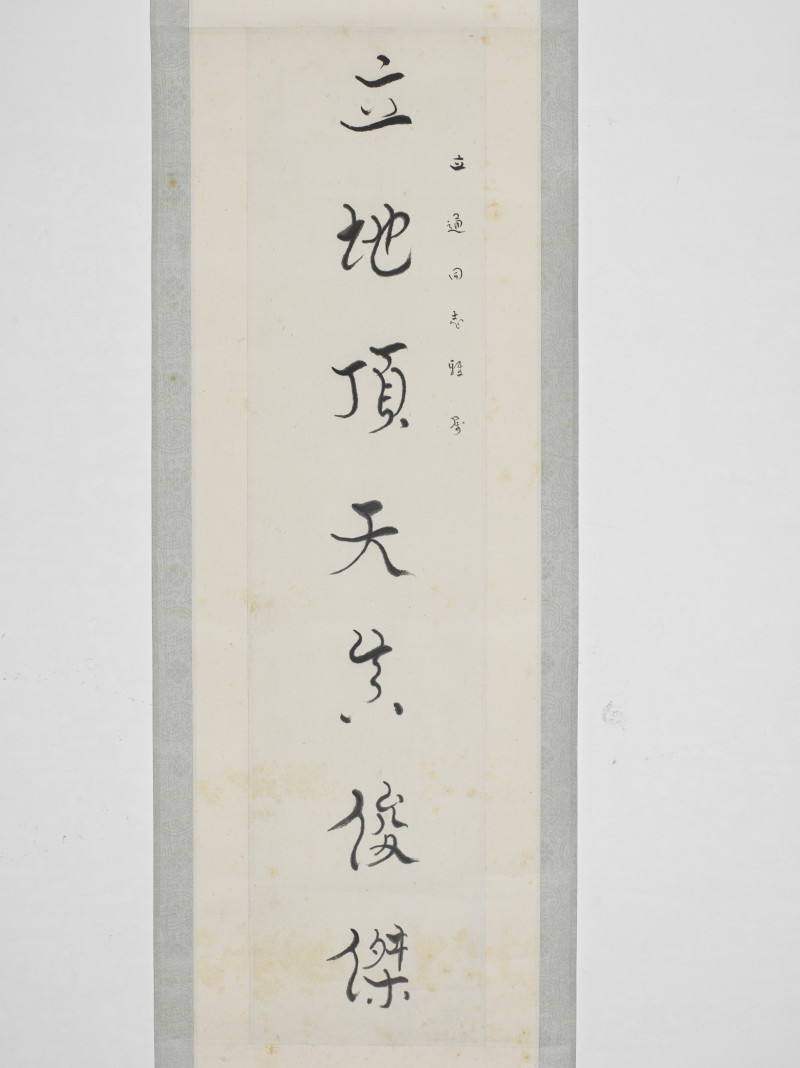 立通同志雅屬
立地頂天真俊傑